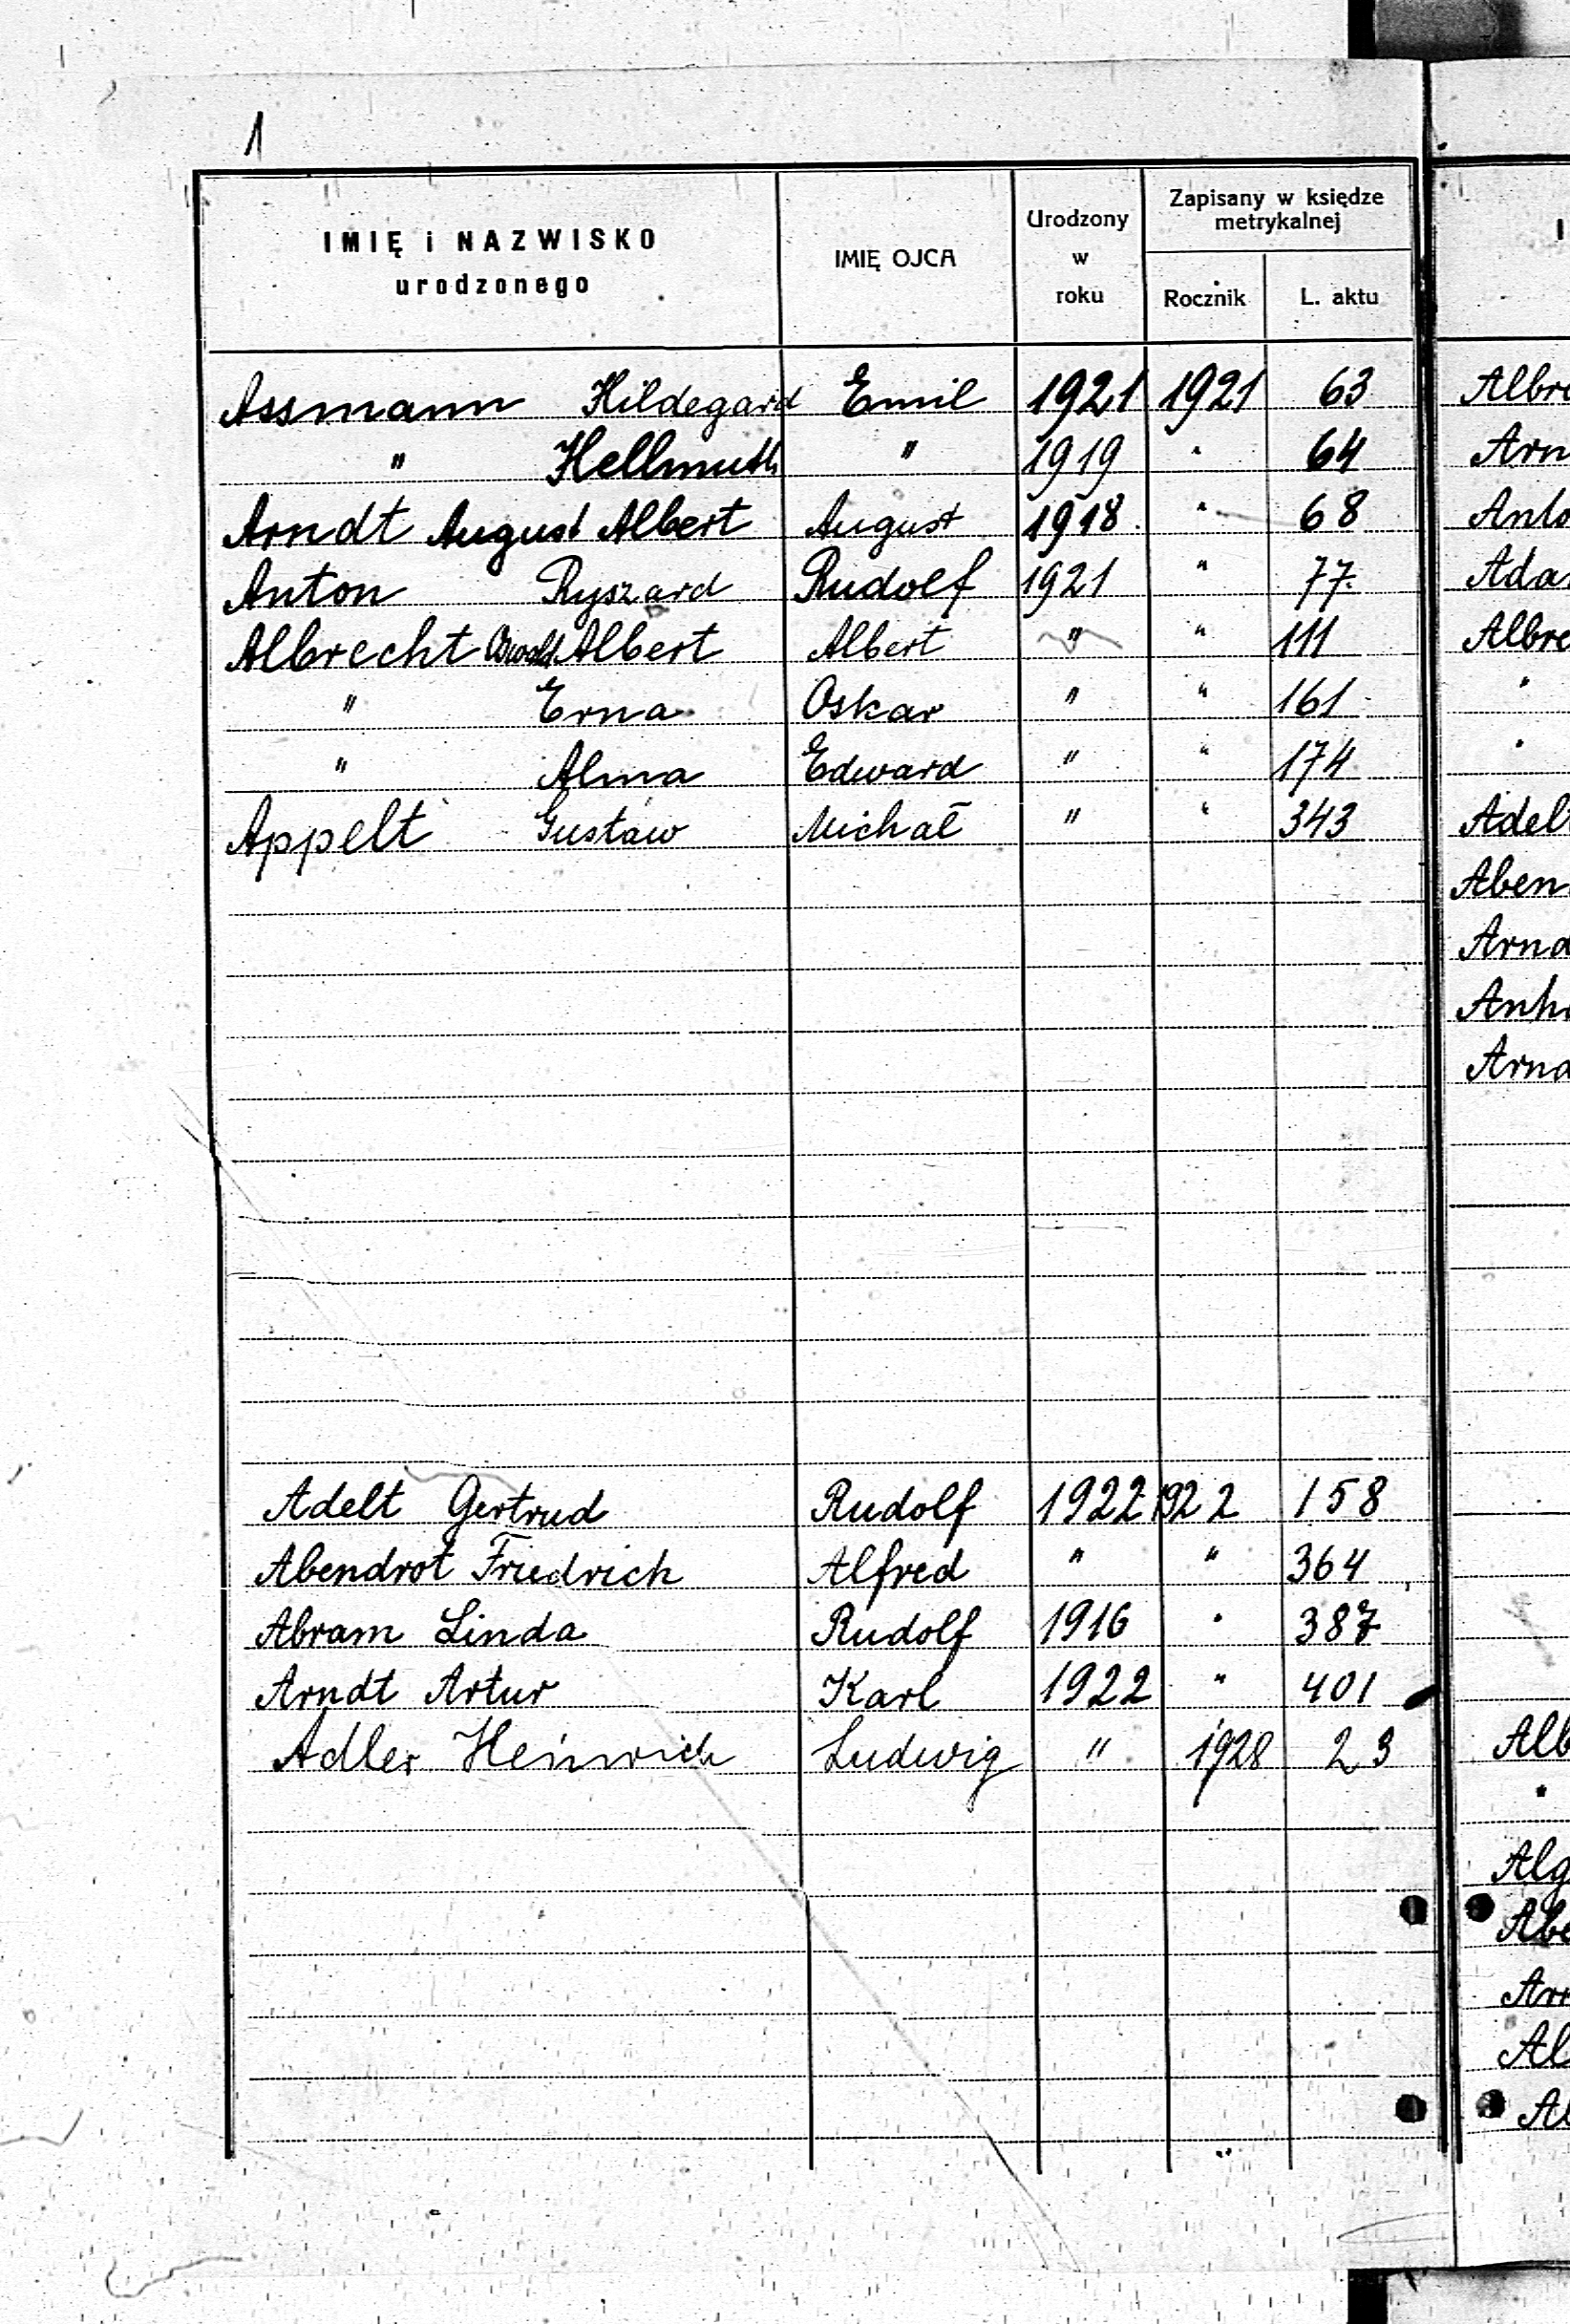 1
IMIĘ i NAZWISKO urodzonego IMIĘ OJCA Urodzony w roku Zapisany w księdze metrykalnej Rocznik L. aktu
Assmann Hildegard Emil 1921 1921 63
" Hellmuth " 1919 " 64
Arndt August Albert August 1918 " 68
Anton Ryszard Rudolf 1921 " 77
Albrecht Oswald Albert Albert " " 111
" Erna Oskar " " 161
" Alma Edward " " 174
Appelt Gustaw Michał " " 343
Adelt Gertrud Rudolf 1922 1922 158
Abendrot Friedrich Alfred " " 364
Abram Linda Rudolf 1916 " 387
Arndt Artur Karl 1922 " 401
Adler Heinrich Ludwig " 1928 23
I
Albre
Arn
Anto
Ada
Albre
"
"
Adelt
Aben
Arnd
Anh
Arnd
Alb
"
Alg
Abe
Arn
Al
Al